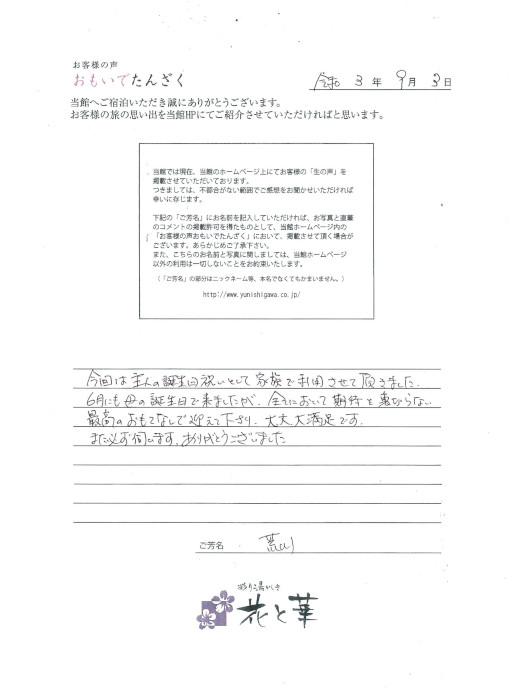 お客様の声
おもいでたんざく
令和 3 年 9 月 3 日
当館へご宿泊いただき誠にありがとうございます。
お客様の旅の思い出を当館HPにてご紹介させていただければと思います。
当館では現在、当館のホームページ上にてお客様の「生の声」を
掲載させていただいております。
つきましては、不都合がない範囲でご感想をお聞かせいただければ
幸いに存じます。
下記の「ご芳名」にお名前を記入していただければ、お写真と直筆
のコメントの掲載許可を得たものとして、当館ホームページ内の
「お客様の声おもいでたんざく」において、掲載させて頂く場合が
ございます。あらかじめご了承下さい。
また、こちらのお名前と写真に関しましては、当館ホームページ
以外の利用は一切しないことをお約束いたします。
（「ご芳名」の部分はニックネーム等、本名でなくてもかまいません。）
http://www.yunishigawa.co.jp/
今回は主人の誕生日祝いとして家族で利用させて頂きました。
6月にも母の誕生日で来ましたが、全てにおいて期待を裏ぎらない
最高のおもてなしで迎えて下さり、大大大満足です。
また必ず伺います。ありがとうございました
ご芳名
彩り湯かしき
花と華